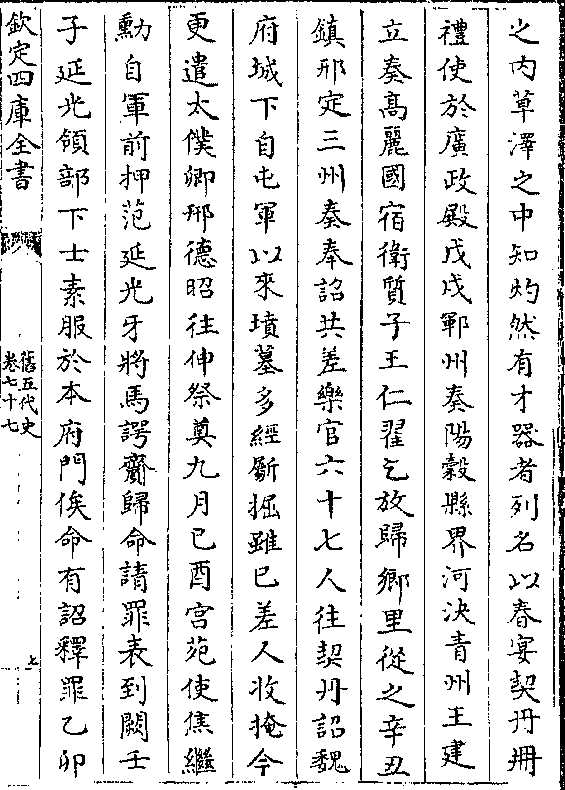 之内草澤之中知灼然有才器者列名以奏宴契丹冊
禮使於廣政殿戊戌鄆州奏陽穀縣界河決青州王建
立奏髙麗國宿衛質子王仁翟乞放歸鄉里從之辛丑
鎮邢定三州奏奉詔共差樂官六十七人往契丹詔魏
府城下自屯軍以來墳墓多經劚掘雖已差人收掩今
更遣太僕卿邢德昭往伸祭奠九月已酉宫苑使焦繼
勳自軍前押范延光牙將馬諤齎歸命請罪表到闕壬
子延光領部下士素服於本府門俟命有詔釋罪乙卯
欽定四庫全書
舊五代史
卷七十七
七